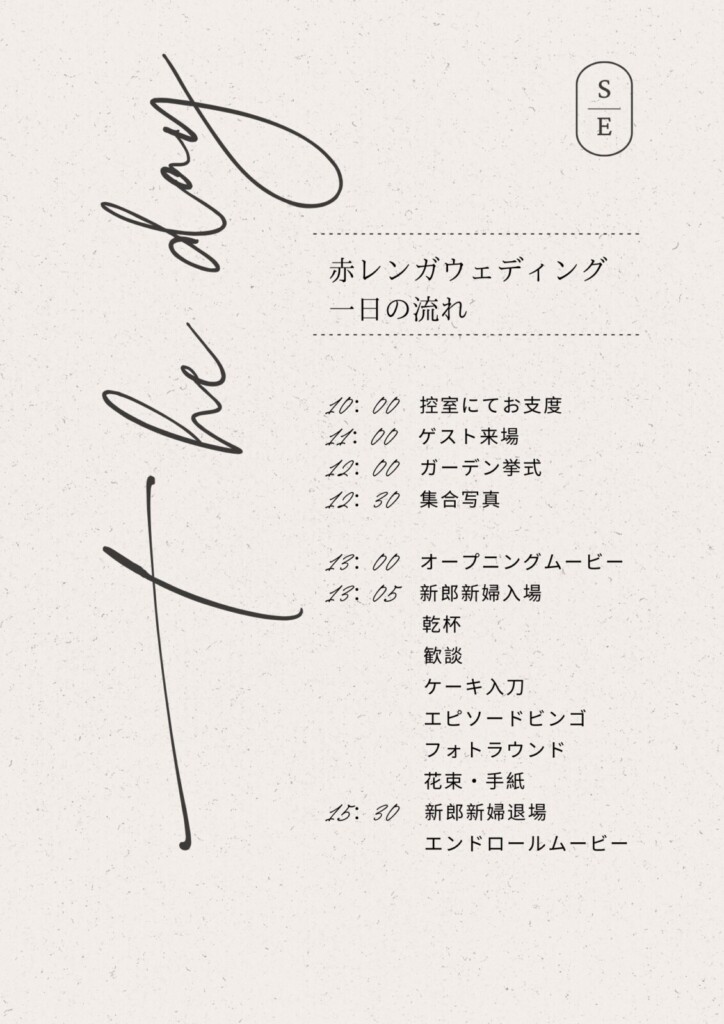 The day
S
E
赤レンガウェディング
一日の流れ
10: 00 控室にてお支度
11: 00 ゲスト来場
12: 00 ガーデン挙式
12: 30 集合写真
13: 00 オープニングムービー
13: 05 新郎新婦入場
乾杯
歓談
ケーキ入刀
エピソードビンゴ
フォトラウンド
花束・手紙
15: 30 新郎新婦退場
エンドロールムービー